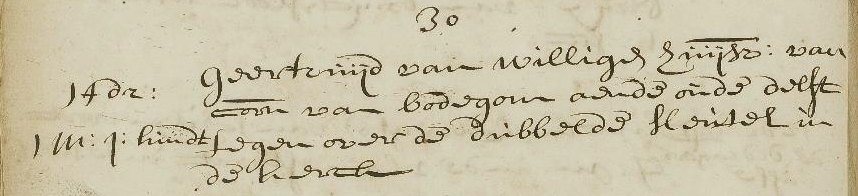 30
Geertruijd van Willigen huijsvr: van
14 dr: Corn van bodegom aende oude delft
1 M: j: kindt tegen over de dubbelde sleutel in
de kerck